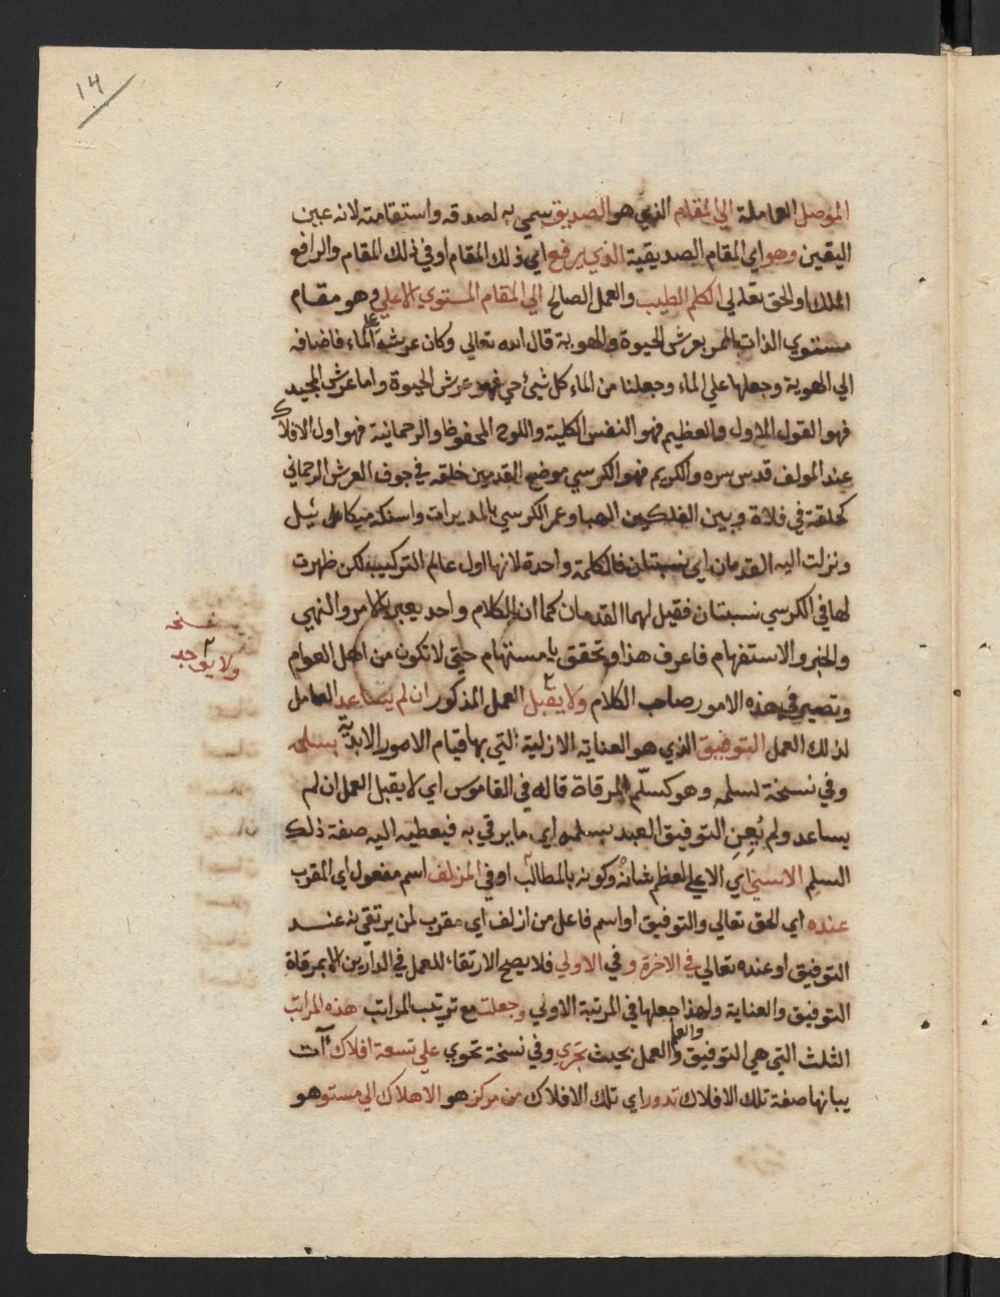 14
الموصل العاملة الي المقام الذي هو الصديق سمي به لصدقه واستقامته لانه عين
اليقين وهو اي المقام الصديقية الذي يرفع اي ذلك المقام او في ذلك المقام والرافع
الملك او الحق تعالي الكلم الطيب والعمل الصالح الي المقام المستوي الاعلي وهو مقام
مستوي الذات بعرش الحيوة والهوية قال الله تعالي وكان عرشه علي الماء فاضافه
الي الهوية وجعلها علي الماء وجعلنا من الماء كل شئ حي فهو عرش الحيوة واما عرش المجيد
فهو القول الاول والعظيم فهو النفس الكلية واللوح المحفوظ والرحمانية فهو اول الافلاك
عند المولف قدس سره والكريم فهو الكرسي موضع القدمين خلقه في جوف العرش الرحماني
كحلقة في فلاة وبين الفلكين الهبا وعمر الكرسي بالمدبرات واسكنه ميكائيل
ونزلت اليه القدمان اي نسبتان فالكلمة واحدة لانها اول عالم التركيب لكن ظهرت
لها في الكرسي نسبتان فقيل لهما القدمان كما ان الكلام واحد يعبر بالامر والنهي
والخبر والاستفهام فاعرف هذا وتحقق يا مستهام حتي لا تكون من اهل العوام
وتصير في هذه الامور صاحب الكلام ولا يقبل العمل المذكور ان لم يساعد العامل
لذلك العمل التوفيق الذي هو العناية الازلية التي بها قيام الامور الابدية بسلمه
وفي نسخة لسلمه وهو كسلّم المرقاة قاله في القاموس اي لا يقبل العمل ان لم
يساعد ولم يُعِنِ التوفيق العبد بسلمه اي ما يرقي به فيعطيه اليه صفة ذلك
السلم الاسني اي الاعلي لعظم شانه وكونه بالمطالب اوفي المزلف اسم مفعول اي المقرب
عنده اي الحق تعالي والتوفيق او اسم فاعل من ازلف اي مقرب لمن يرتقي به عند
التوفيق او عنده تعالي في الاخرة وفي الاولي فلا يصح الارتقاء للعمل في الدارين الا بمرقاة
التوفيق والعناية ولهذا جعلها في المرتبة الاولي وجعلت مع ترتيب المراتب هذه المراتب
الثلث التي هي التوفيق والعلم والعمل بحيث تجري وفي نسخة تحوي علي تسعة افلاك آت
بيانها صفة تلك الافلاك تدور اي تلك الافلاك من مركز هو الاهلاك الي مستو هو
نسخه
ولا يوجد